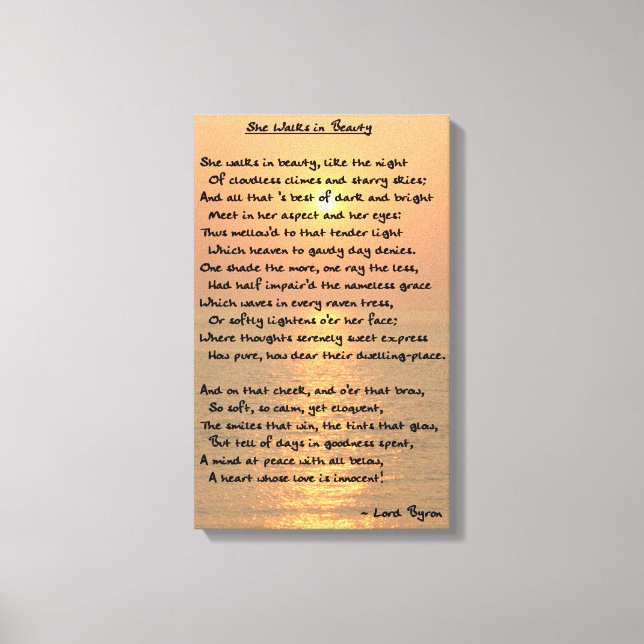 She Walks in Beauty
She walks in beauty, like the night
Of cloudless climes and starry skies;
And all that 's best of dark and bright
Meet in her aspect and her eyes:
Thus mellow'd to that tender light
Which heaven to gaudy day denies.
One shade the more, one ray the less,
Had half impair'd the nameless grace
Which waves in every raven tress,
Or softly lightens o'er her face;
Where thoughts serenely sweet express
How pure, how dear their dwelling-place.
And on that cheek, and o'er that brow,
So soft, so calm, yet eloquent,
The smiles that win, the tints that glow,
But tell of days in goodness spent,
A mind at peace with all below,
A heart whose love is innocent!
~ Lord Byron